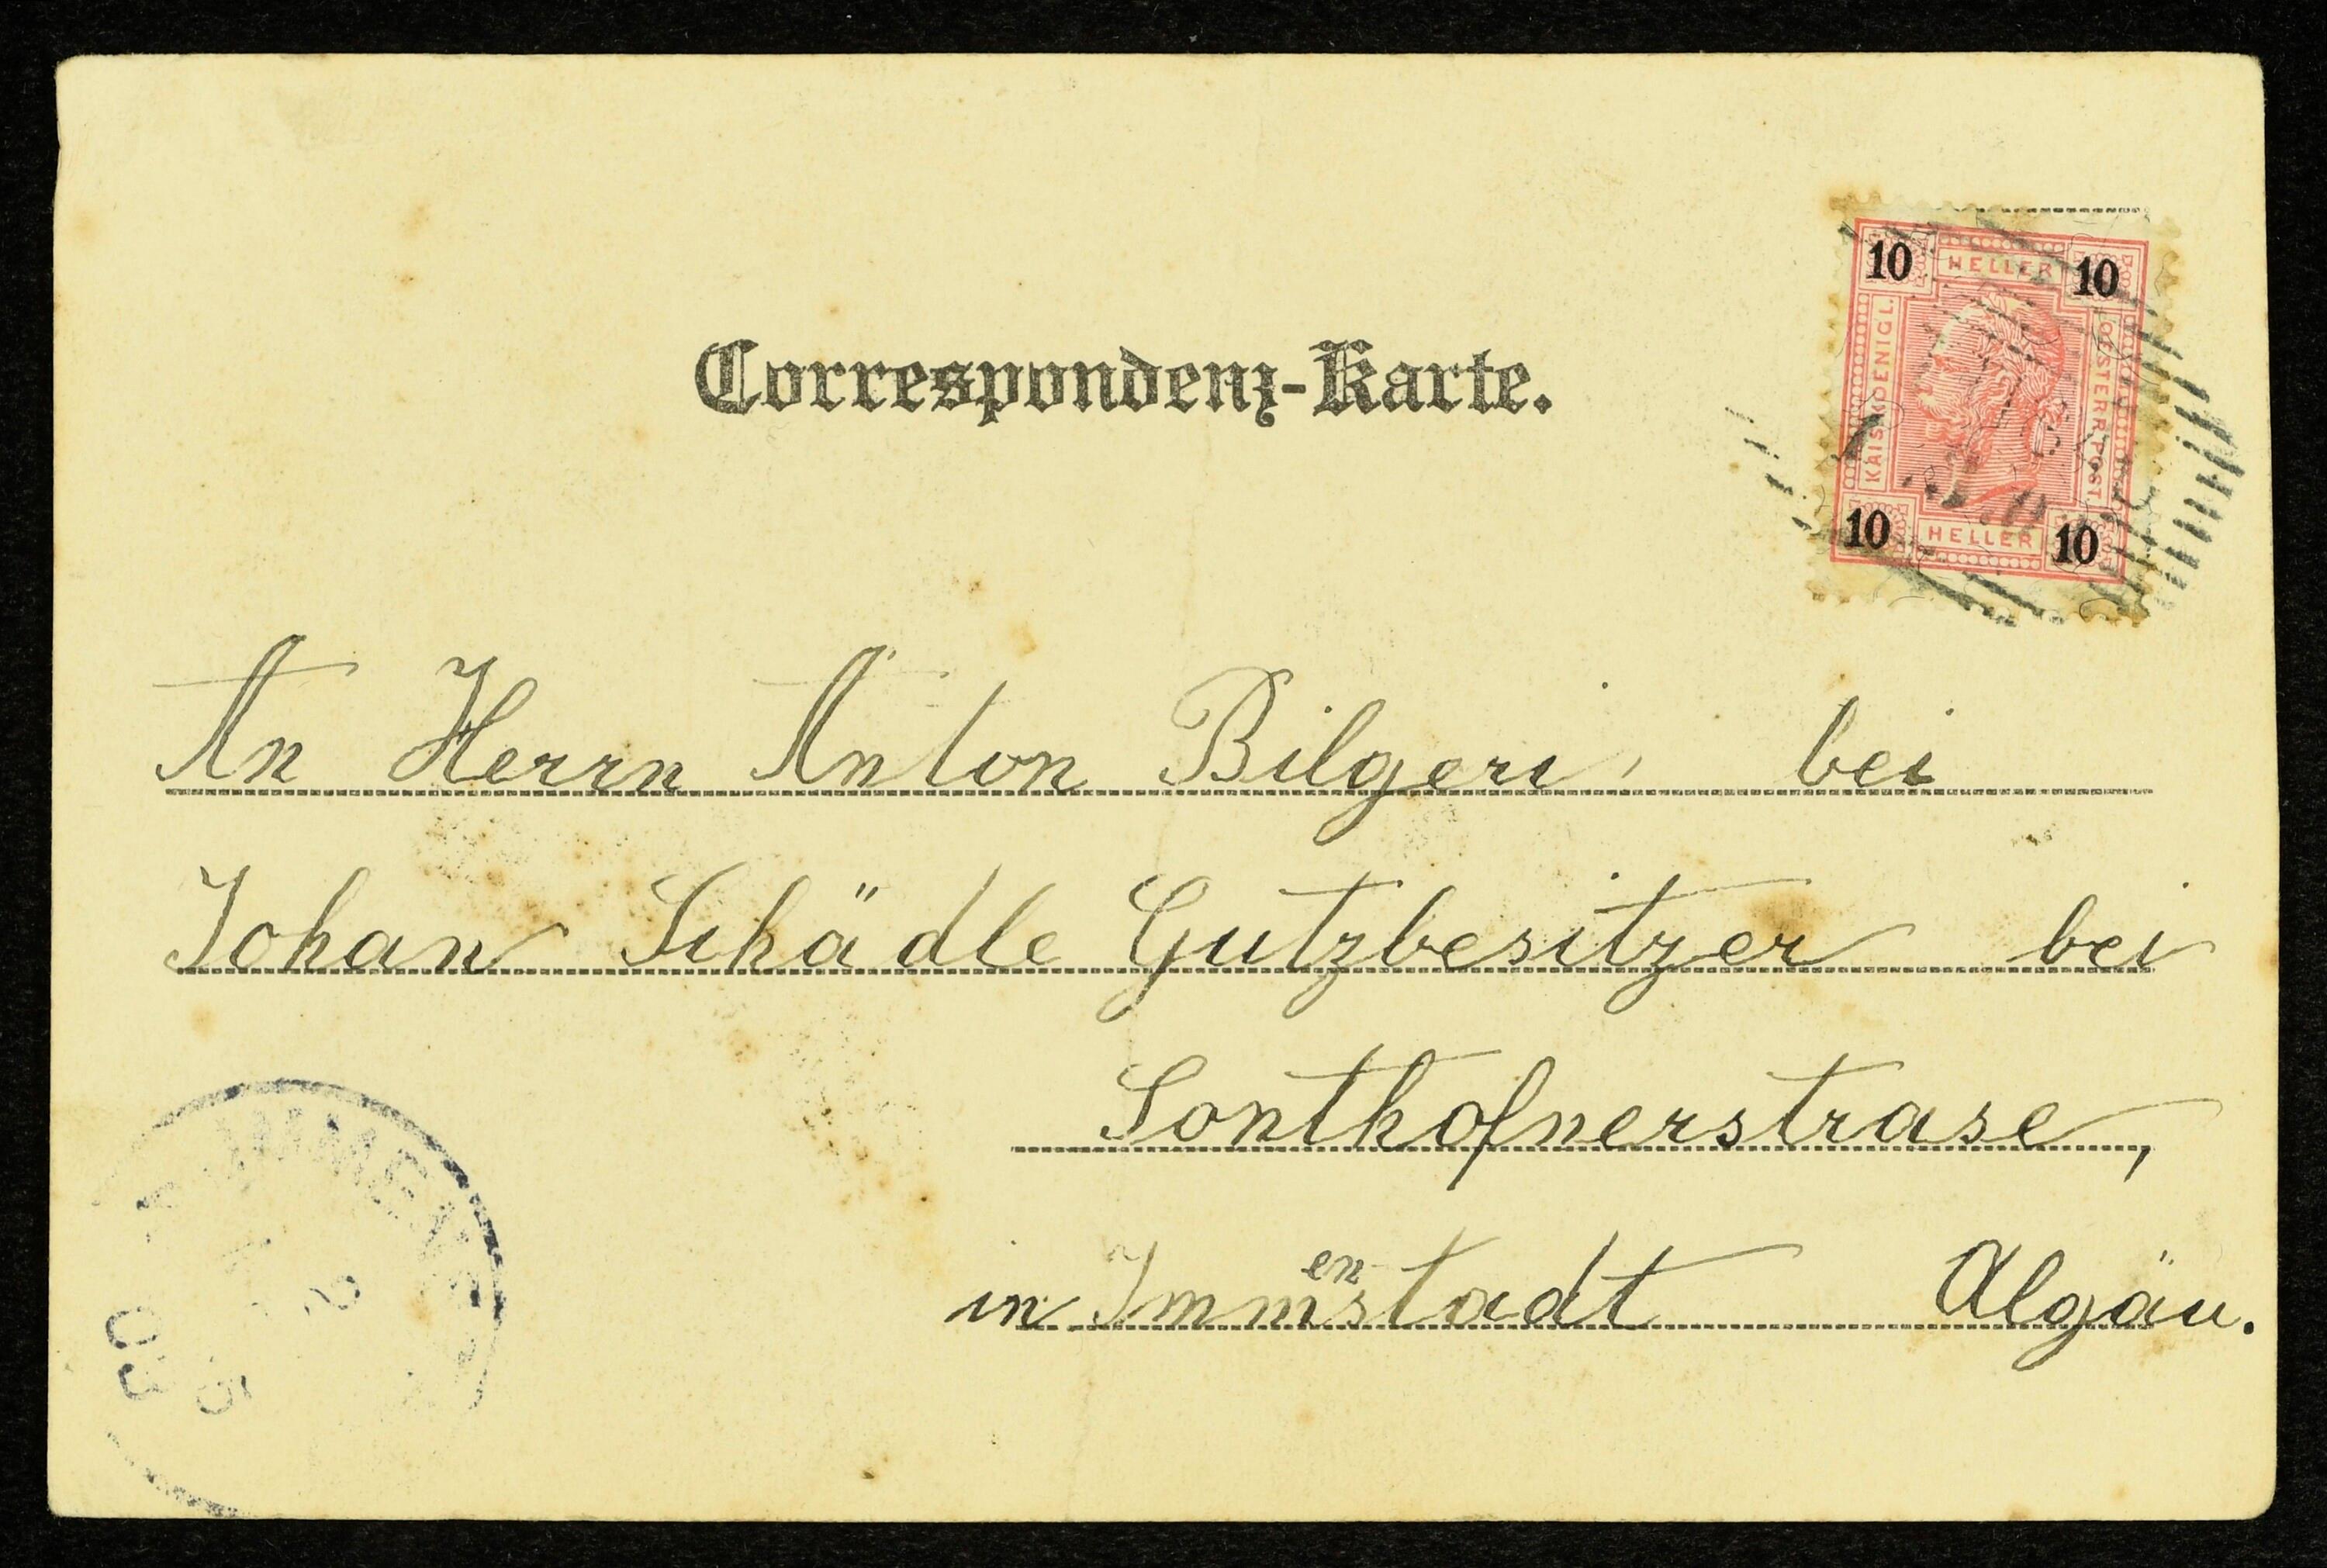 10 HELLER 10
KAIS. KOENIGL.
OESTERR. POST.
10 HELLER 10
Correspondenz-Karte.
An Herrn Anton Bilgeri, bei
Johan Schädle Gutzbesitzer bei
Sonthofnerstrase,
in Immenstadt Algäu.
03